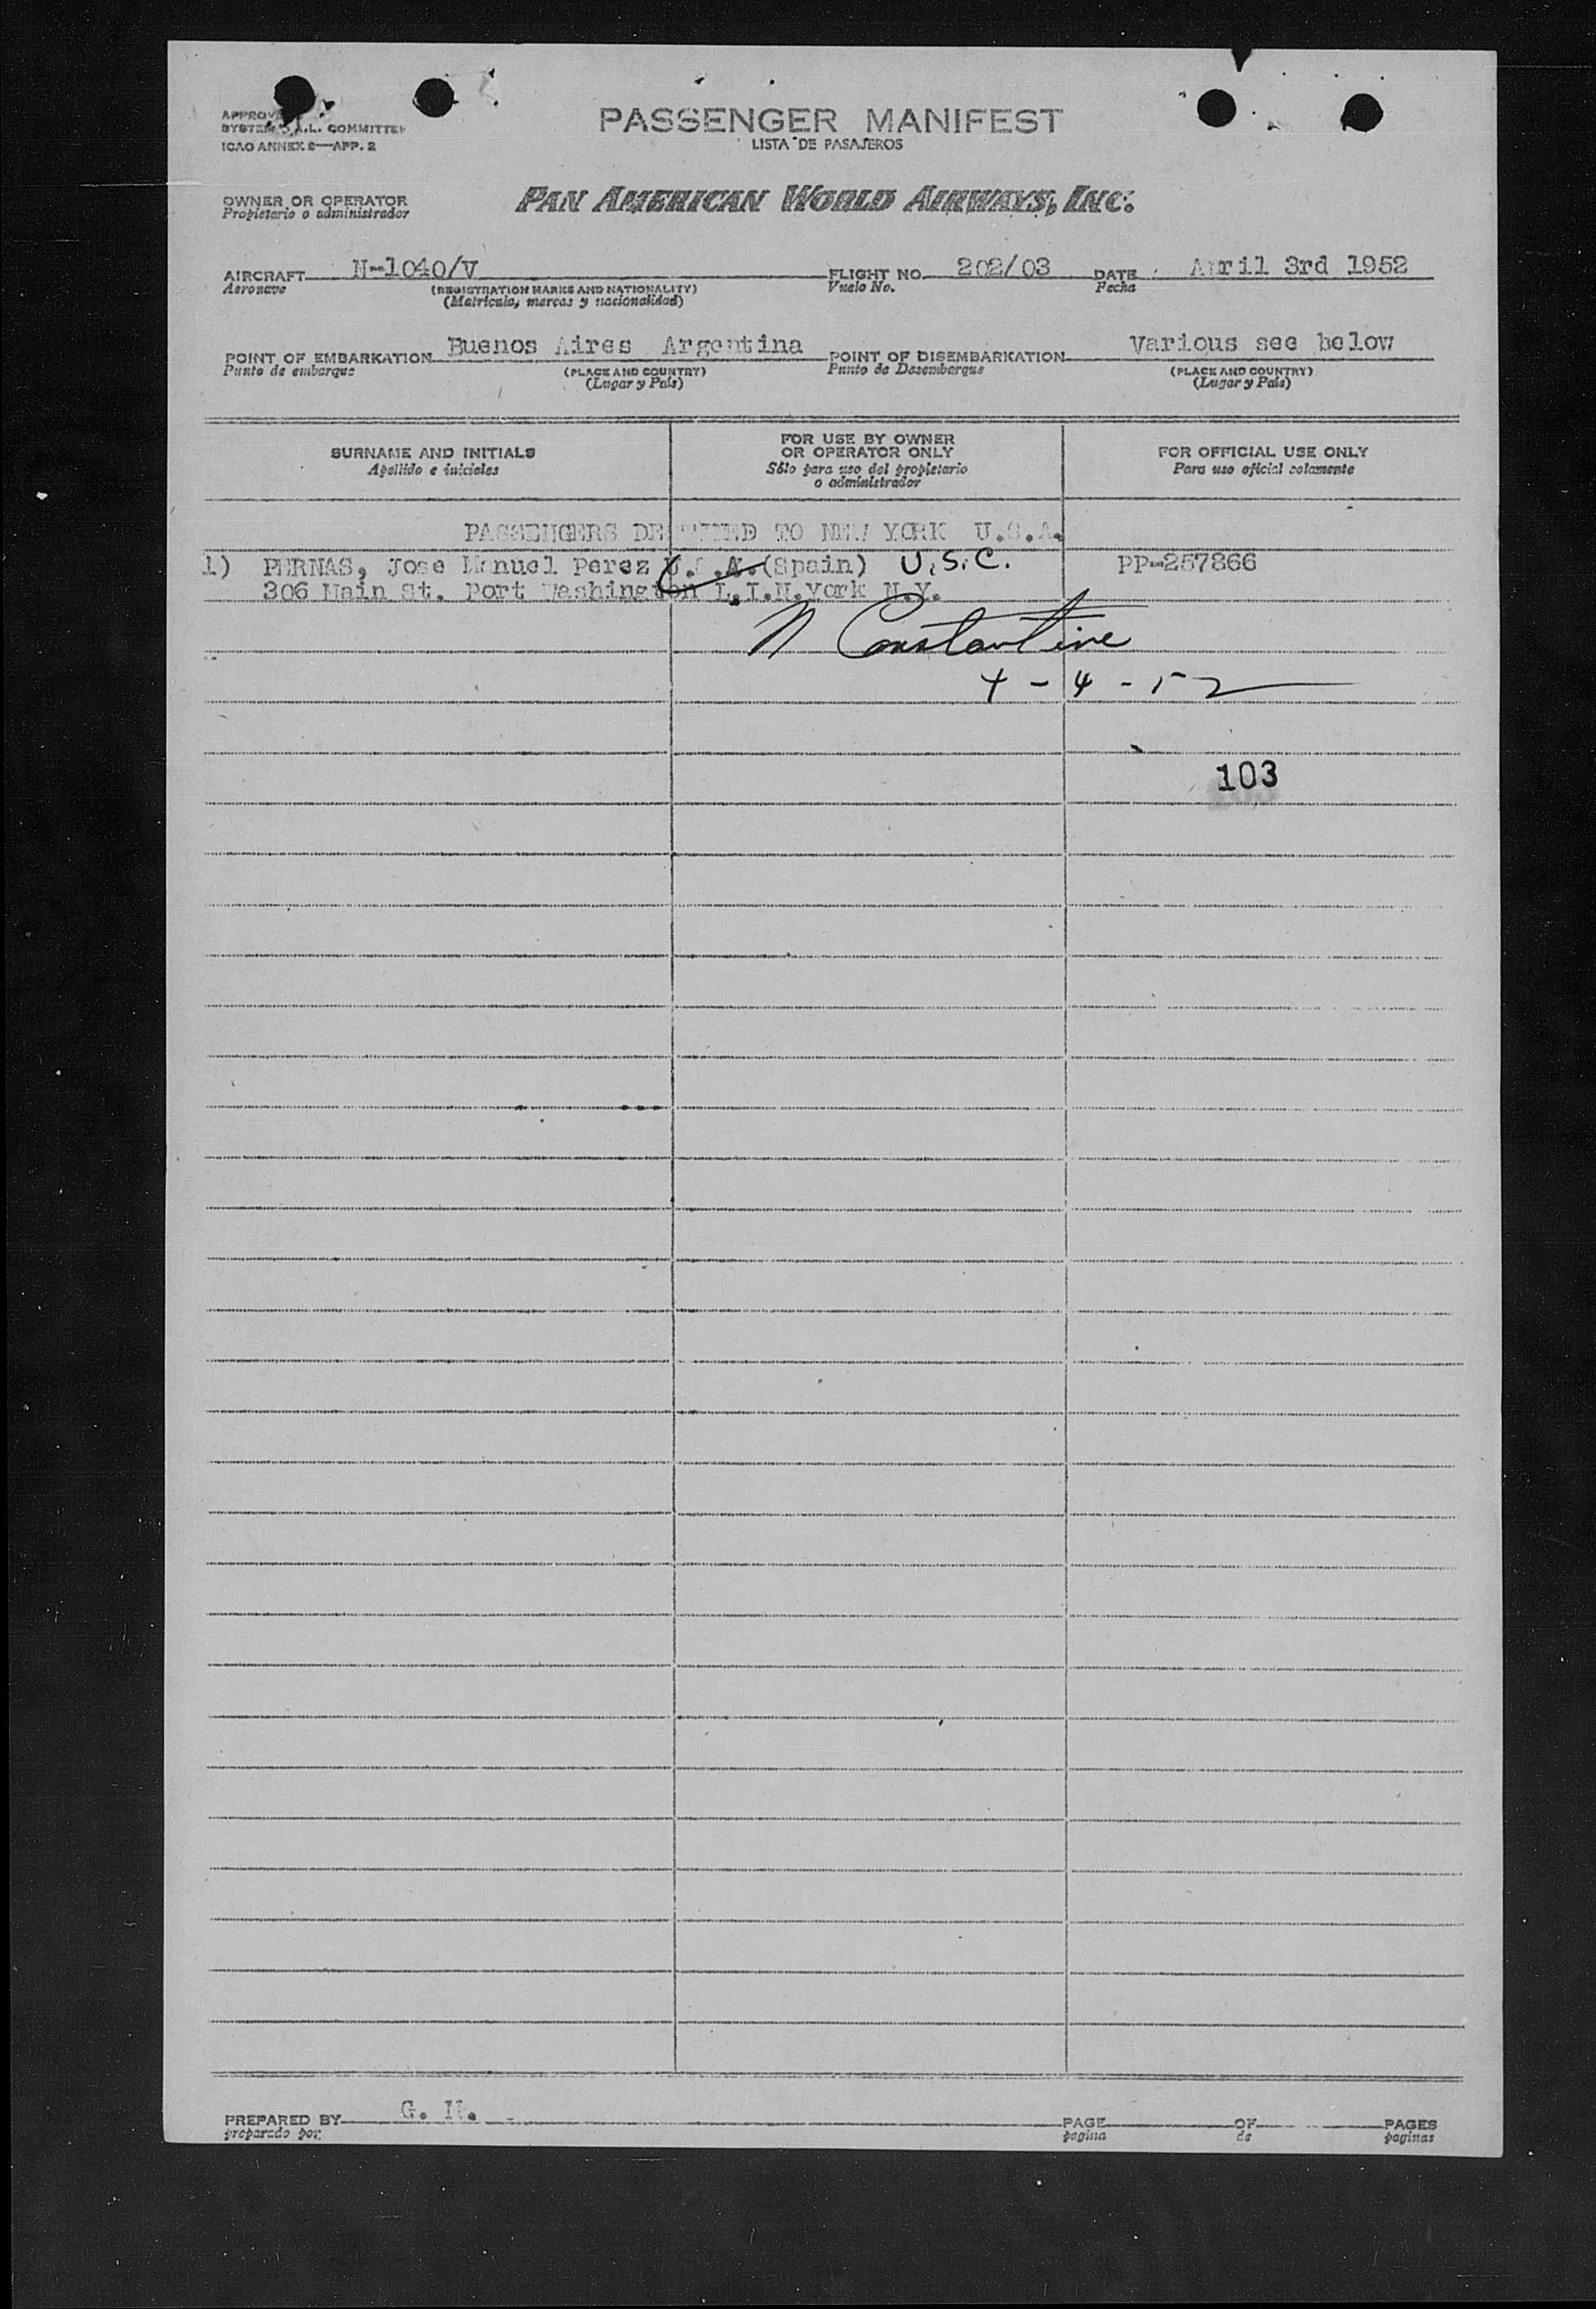 PASSENGER MANIFEST
LISTA DE PASAJEROS
SYSTEM COMMITTEE
ICAO ANNEX 9—APP. 2
OWNER OR OPERATOR
Propietario o administrador
PAN AMERICAN WORLD AIRWAYS, INC.
AIRCRAFT N-1040/V FLIGHT NO. 202/03 DATE April 3rd 1952
Aeronave (REGISTRATION MARKS AND NATIONALITY) Vuelo No. Fecha
(Matricula, marcas y nacionalidad)
POINT OF EMBARKATION Buenos Aires Argentina POINT OF DISEMBARKATION Various see below
Punto de embarque (PLACE AND COUNTRY) Punto de Desembarque (PLACE AND COUNTRY)
(Lugar y País) (Lugar y País)
SURNAME AND INITIALS
Apellido e iniciales
FOR USE BY OWNER
OR OPERATOR ONLY
Sólo para uso del propietario
o administrador
FOR OFFICIAL USE ONLY
Para uso oficial solamente
PASSENGERS DESTINED TO NEW YORK U.S.A.
1) PERNAS, Jose Manuel Perez U.S.A.(Spain) U.S.C. PP-257866
306 Main St. Port Washington L.I.N.York N.Y.
N Constantine
4-4-52
103
PREPARED BY G. PAGE OF PAGES
preparado por pagina de paginas